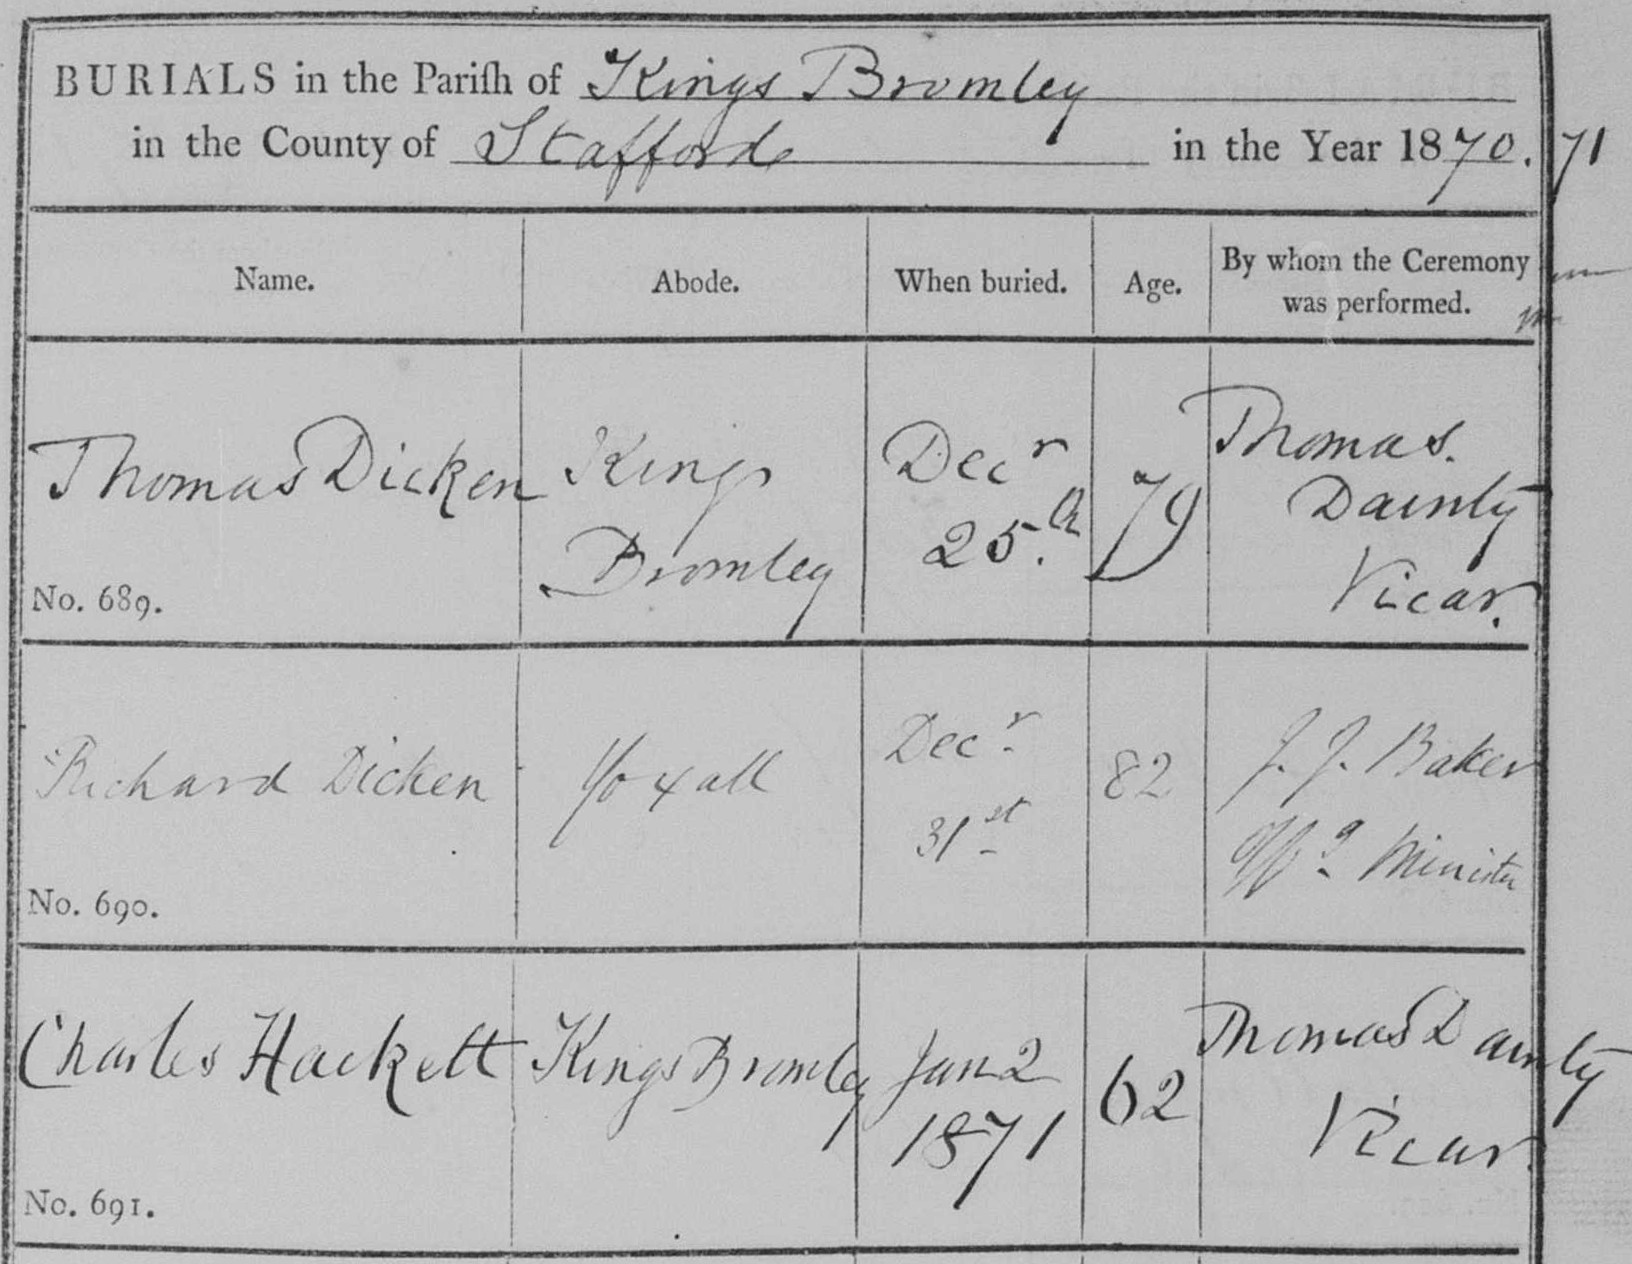 BURIALS in the Pariſh of Kings Bromley
in the County of Stafford in the Year 1870. 71
Name. Abode. When buried. Age. By whom the Ceremony was performed.
Thomas Dicken
Kings
Bromley
Decr
25.th
79
Thomas.
Dainty
Vicar.
No. 689.
Richard Dicken
Yoxall
Decr
31st
82
J. J. Baker
Offg Minister
No. 690.
Charles Hackett
Kings Bromley
Jan 2
1871
62
Thomas Dainty
Vicar.
No. 691.